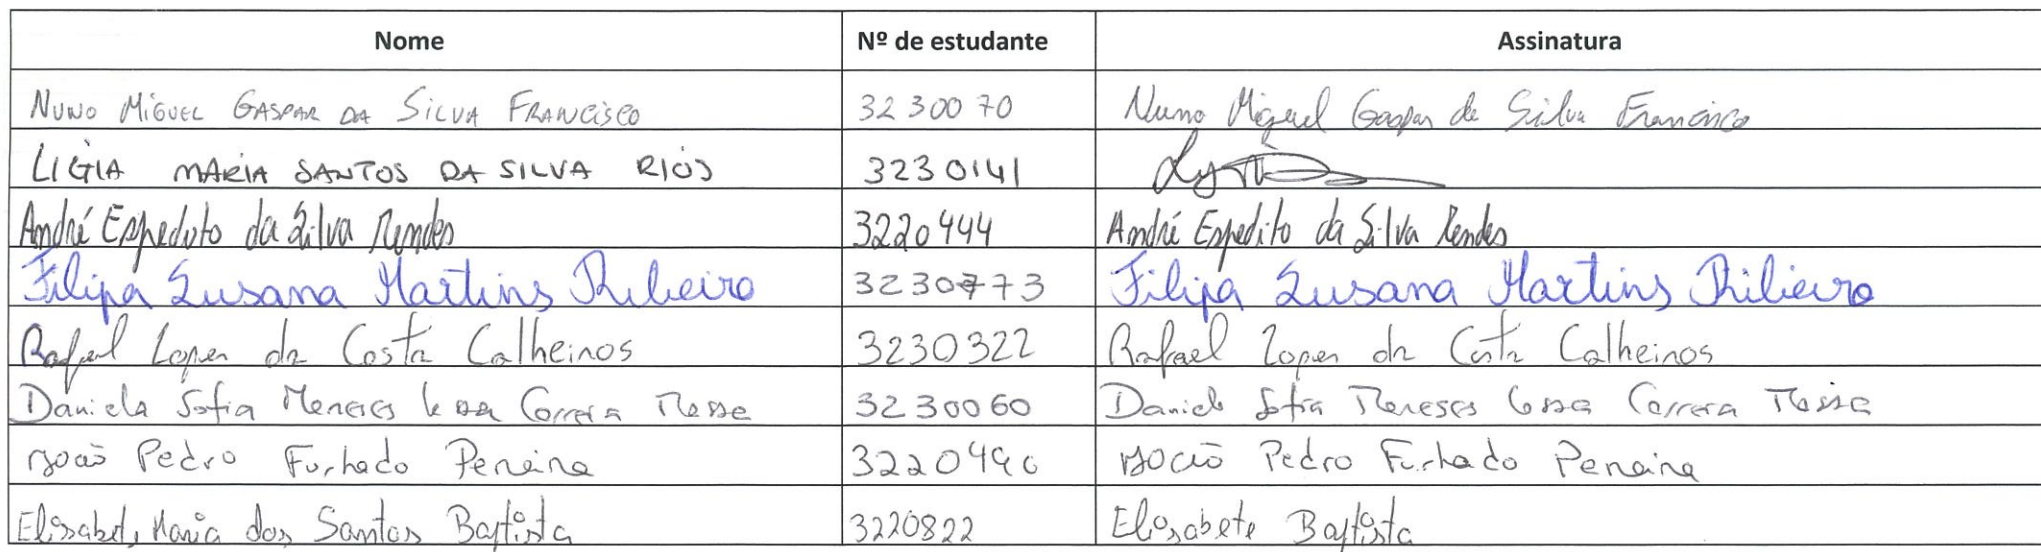 Nome Nº de estudante Assinatura
Nuno Miguel Gaspar da Silva Francisco 3230070 Nuno Miguel Gaspar da Silva Francisco
LIGIA MARIA SANTOS DA SILVA RIOS 3230141
André Espedito da Silva Mendes 3220444 André Espedito da Silva Mendes
Filipa Susana Martins Ribeiro 3230773 Filipa Susana Martins Ribeiro
Rafael Lopes da Costa Calheiros 3230322 Rafael Lopes da Costa Calheiros
Daniela Sofia Meneses Correia 3230060 Daniela Sofia Meneses Correia
João Pedro Furtado Pereira 3220490 João Pedro Furtado Pereira
Elisabete Maria dos Santos Baptista 3220822 Elisabete Baptista